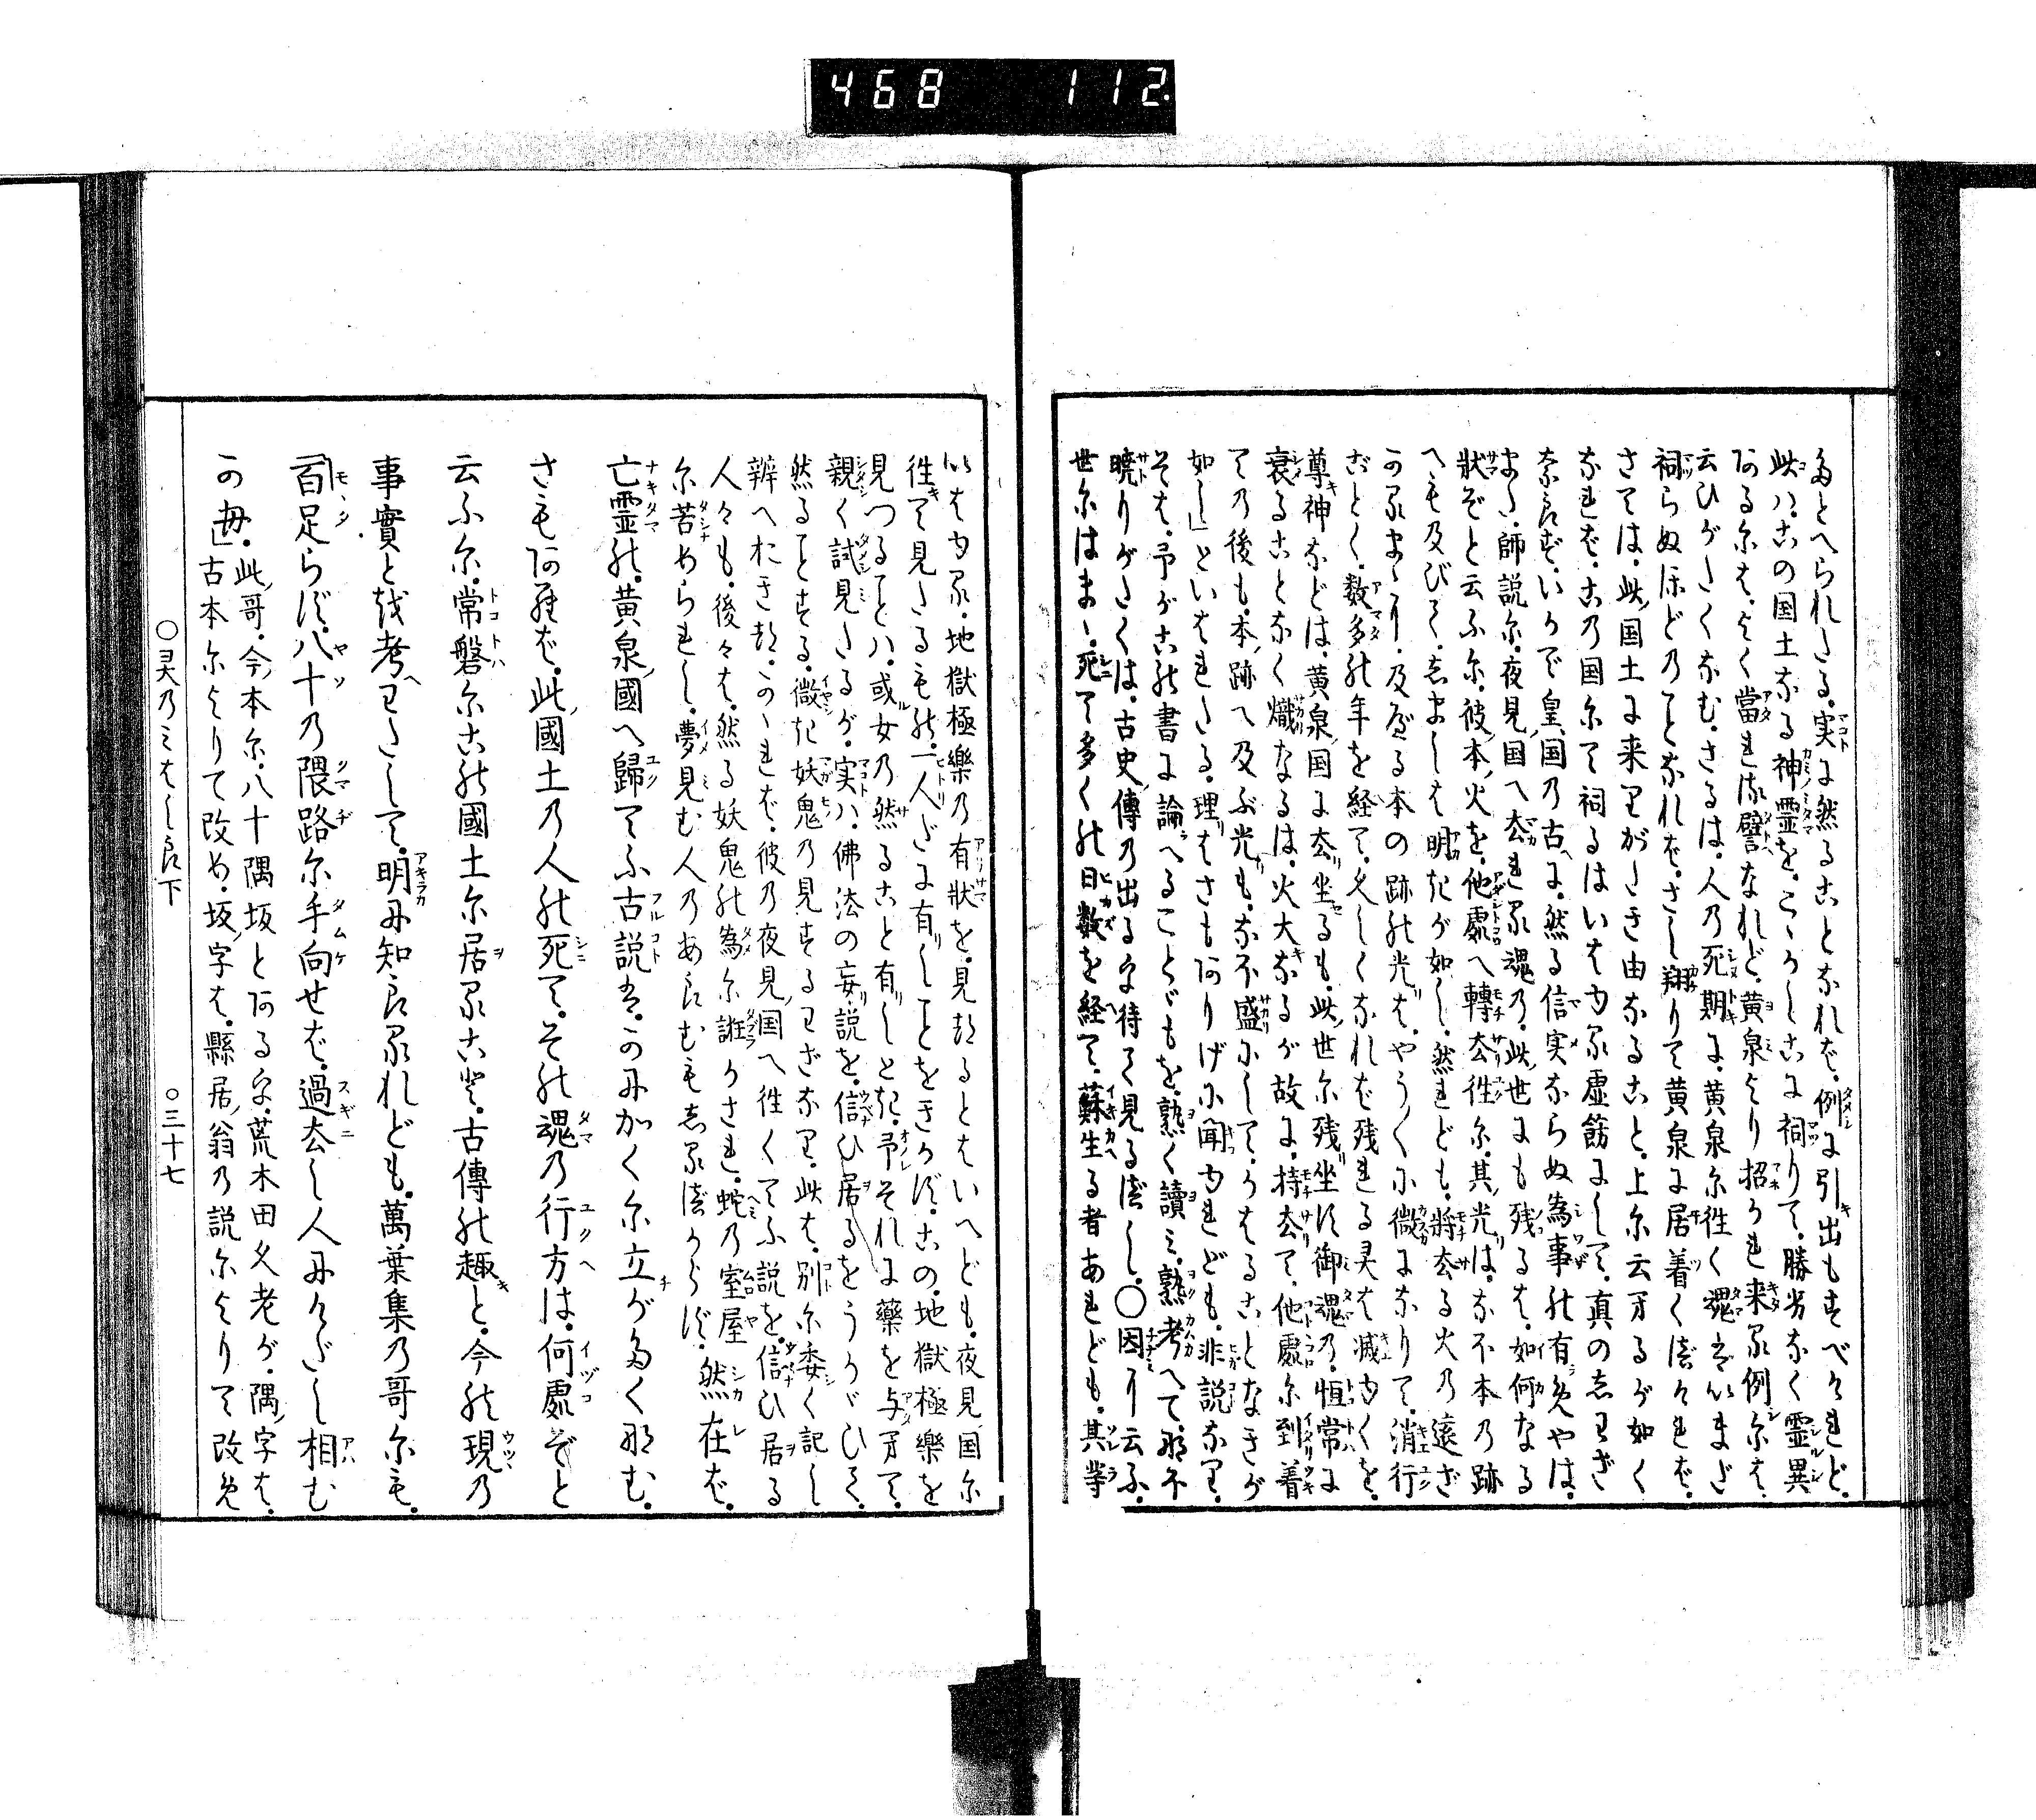 468 112
なとへられたる。実に然ることなれば。例に引出もすべけれど。
此ハ。この国土なる神霊を。こゝかしこに祠りて。勝劣なく霊異
あるにて。よく當れる譬なれど。黄泉より招かれ来る例には。
云ひがたくなむ。さるは。人の死期に。黄泉に徃く魂をいまだ
祠らぬほどのことなれば。さし翔りて黄泉に居着くべければ。
さては。此国土に来りがたき由なること。上に云るが如く
なれば。この国にて祠るはいはゆる虚飾にして。真のしわざ
ならず。いかで皇国の古に。然る信実ならぬ為事の有めやは。
また師説に。夜見国へ去れる魂の。此世にも残るは。如何なる
状ぞと云ふに。彼本火を。他處へ轉去徃に。其光は。なほ本の跡
へも及びて。しましは明きが如し。然れども。将去る火の遠ざ
かるまゝに。及べる本の跡の光は。やうやくに微になりて。消行
ごとく。数多の年を経て。久しくなれば残れる霊は滅ゆくを。
尊神などは黄泉国に去坐るも。此世に残坐す御魂の。恒常に
衰ることなく熾なるは。火大なるが故に。持去て。他處に到着
ての後も。本跡へ及ぶ光も。なほ盛にして。かはることなきが
如し」といはれたる。理はさもありげに聞ゆれども。非説なり。
そは。予がこの書に論へることゞもを。熟く讀み。熟考へて。なほ
暁りがたくは。古史傳の出るを待て見るべし。○因に云ふ。
世にはまゝ。死て多くの日数を経て。蘇生る者あれども。其等
いはゆる。地獄極樂の有状を。見たるとはいへども。夜見国に
徃て見たるもの。一人だに有しことをきかず。この地獄極樂を
見つることハ。或女の然ること有しとき。予それに藥を与へて。
親く試見たるが。実ハ。佛法の妄説を。信ひ居るをうかゞひて。
然ることする。微き妖鬼の見するわざなり。此は。別に委く記し
辨へおきたり。かゝれば。彼の夜見国へ徃くてふ説を。信ひ居る
人々も。後々は。然る妖鬼の為に誑かされ。蛇の室屋
に苦められし。夢見む人のあらむもしるべからず。然在ば。
亡霊の。黄泉国へ歸てふ古説は。かにかくに立がたくなむ。
さもあらば。此國土の人の死て。その魂の行方は。何處ぞと
云ふに。常磐にこの國土に居ること。古傳の趣と。今の現の
事實とを考へわたして。明に知らるれども。萬葉集の哥にも。
「百足らず。八十の隈路に手向せば。過去し人にけだし相む
かも」此哥。今本に。八十隅坂とあるを。荒木田久老が。隅字は。
古本によりて改め。坂字は。縣居翁の説によりて改め
○霊のみはしら下 ○三十七